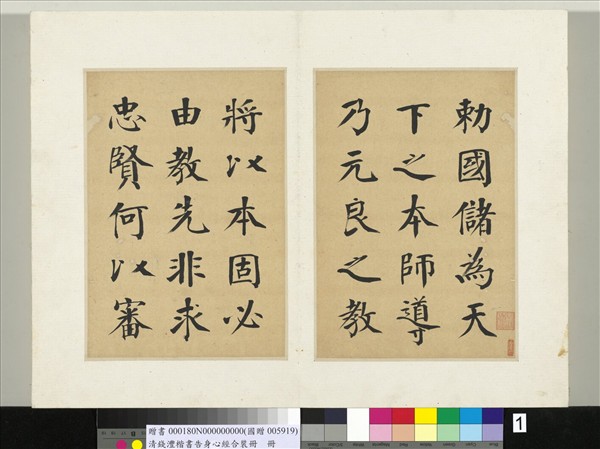 勅國儲為天
下之本師導
乃元良之教
將以本固必
由教先非求
忠賢何以審
贈書 000180N000000000(國贈 005919)
清錢灃楷書告身心經合裝冊 冊
1